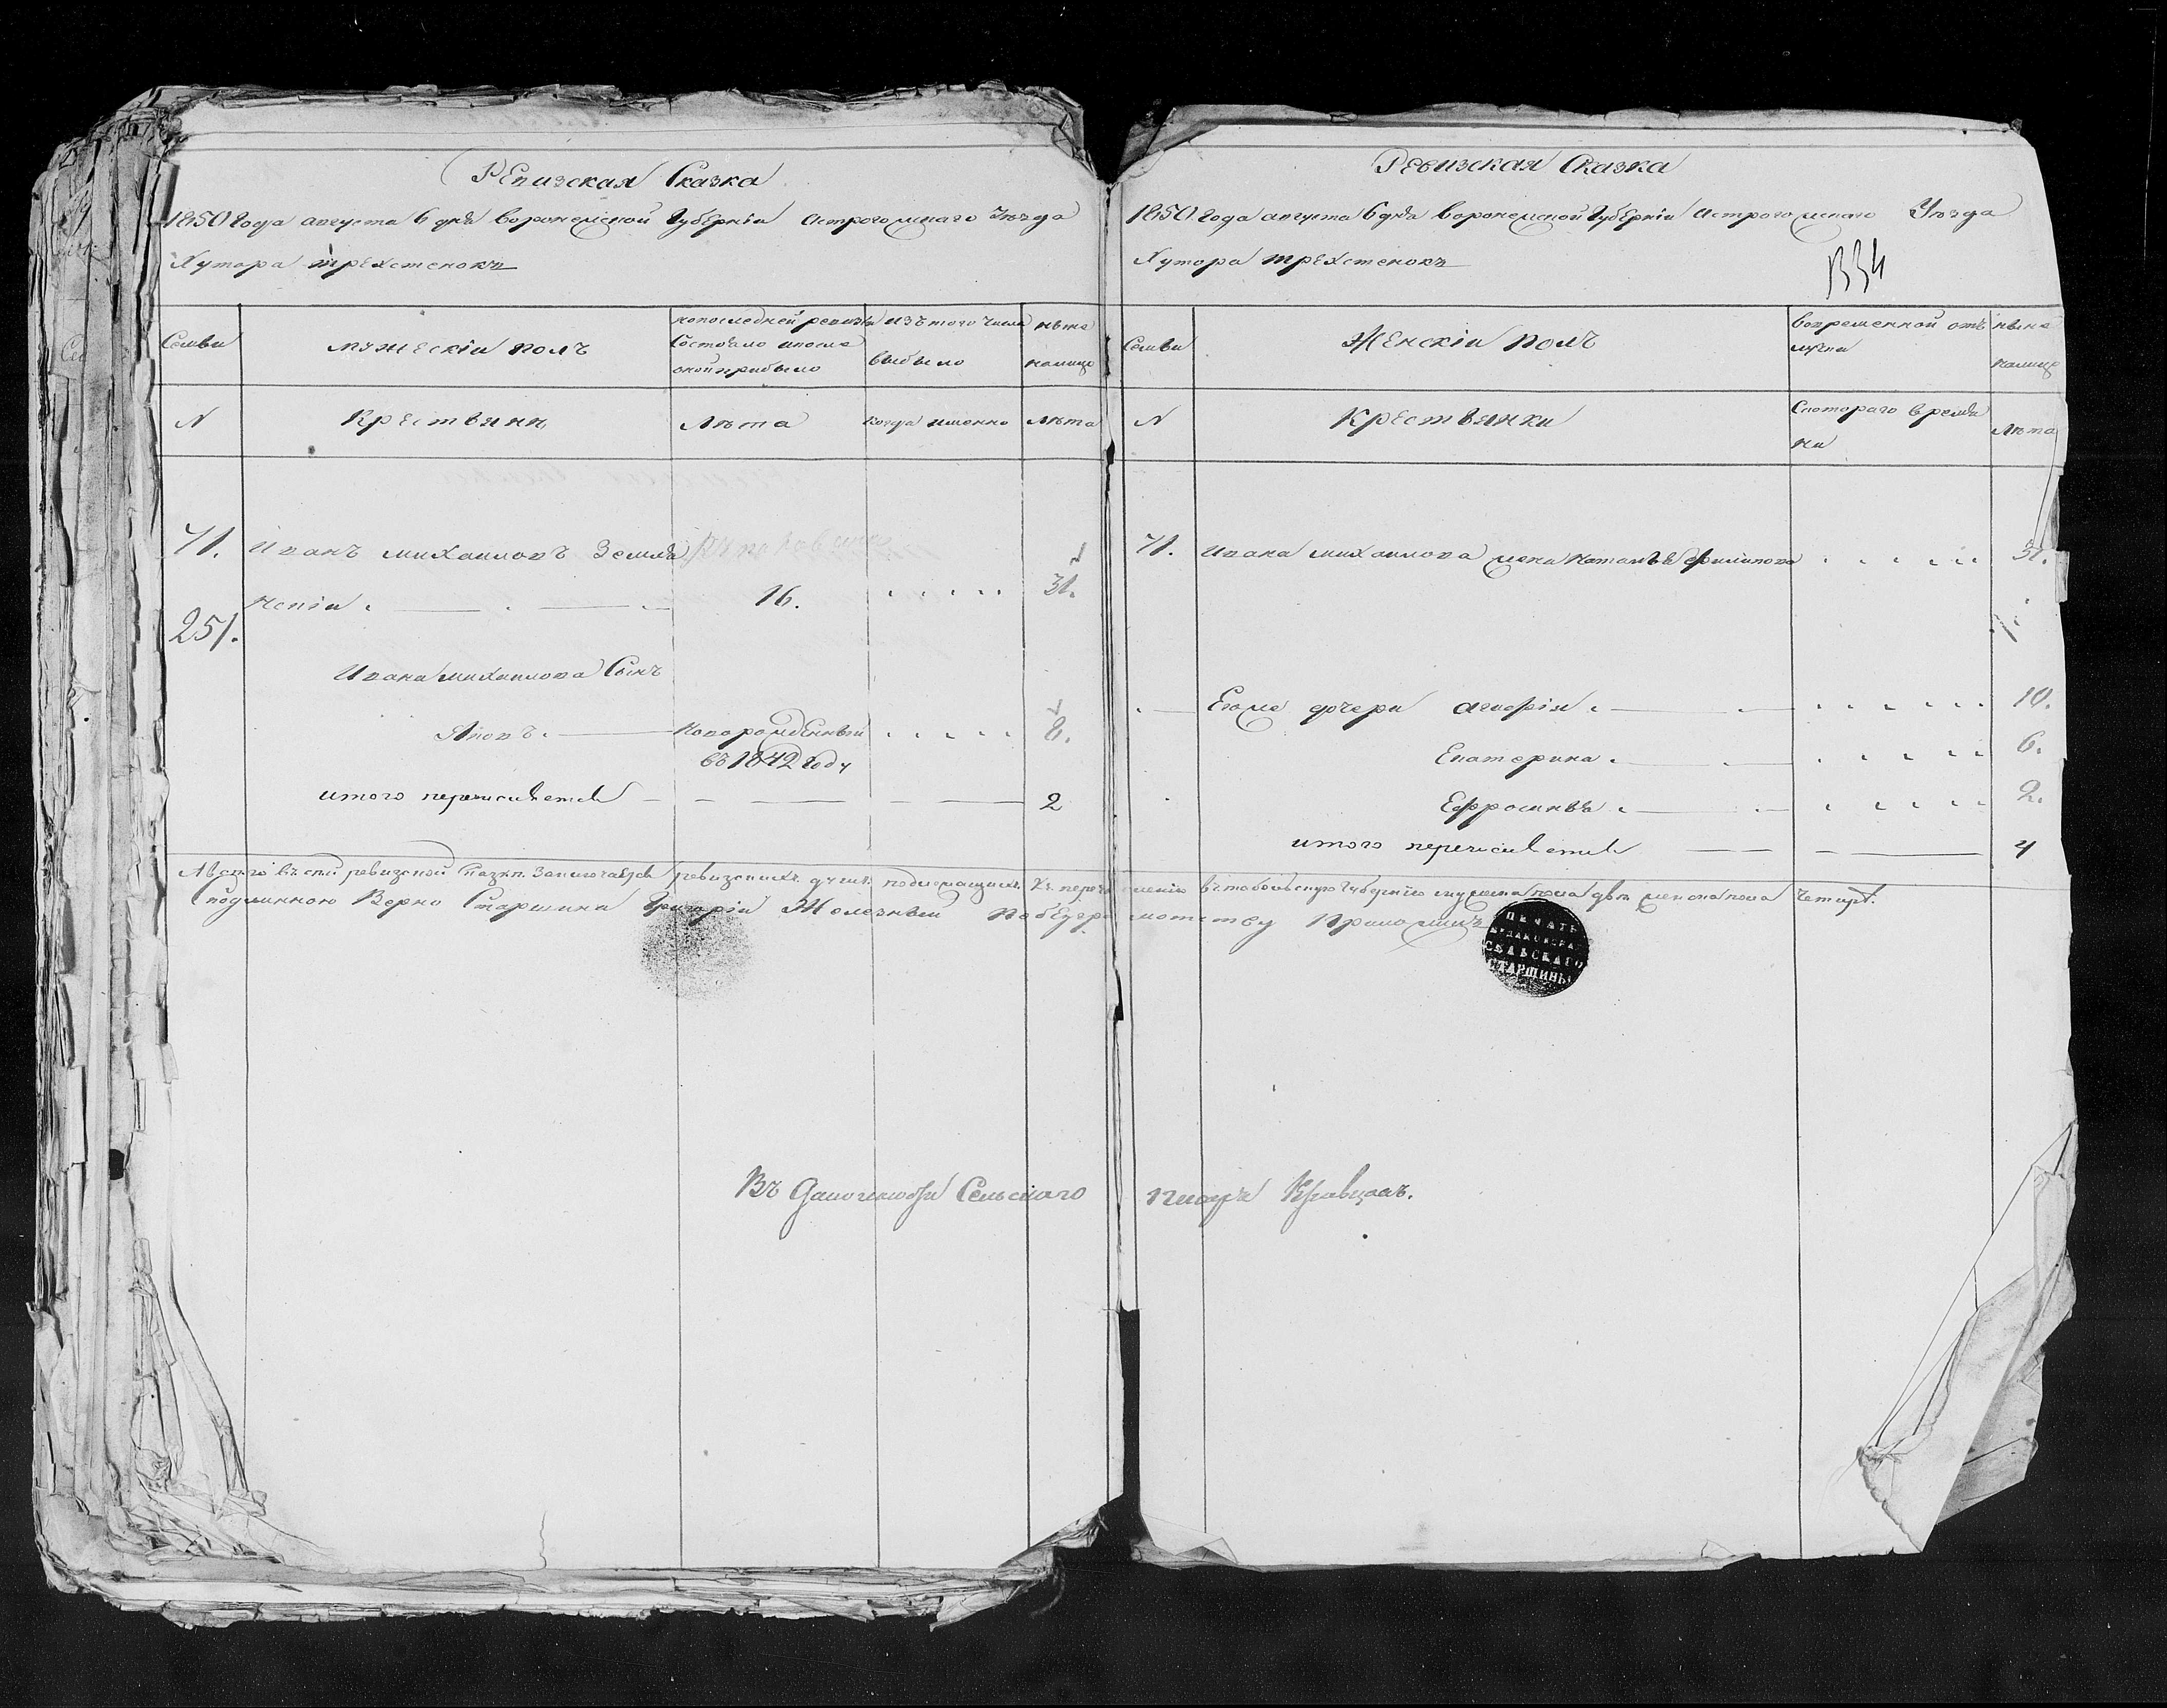 Ревизская Сказка
1850 Года августа 6 дня воронежской Губерніи Острогожскаго Уезда
Хутора трехстенокъ
Семьи
мужескіи полъ
попоследней ревизіи
Состояло ипосле
оной прибыло
изъ того числа
выбыло
ныне
налицо
N
Крестьяни
Лета
когда имянно
Лета
71.
Иванъ михаиловъ Земля
негіи
16.
31.
251.
Ивана михаилова Сынъ
Яковъ
Новорожденный
въ 1842 Году
8.
итого перечисляется
2
Ревизская Сказка
1850 Года августа 6 дня воронежской Губерніи Острогожскаго Уезда
Хутора трехстенокъ
334
Семьи
Женскіи полъ
вовременной отъ
лучки
ныне
налицо
N
Крестьянки
Скотораго время
ни
Лета
71.
Ивана михаилова жена Наталья Филипова
31.
Егоже дочери
10.
Екатерина
6.
Ефросинья
2.
итого перечисляется
4
Авсего въ сей ревизской Сказки Заключается ревизскихъ душъ подлежащихъ Къ перечислению въ тобольскую Губернію мужеска пола две женска пола Четыре.
Сподлинною Верно Старшина Григорій Железный Побезграмотству Приложилъ
ПЕЧАТЬ
СЕЛЬСКАГО
СТАРШИНЫ
Въ Должности Сельскаго писаря Кравцовъ.